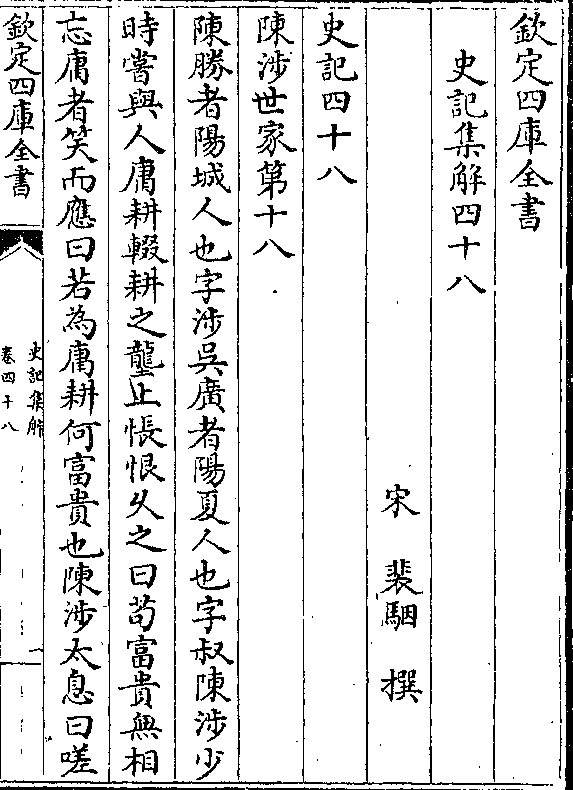 欽定四庫全書
史記集解四十八
宋 裴駰 撰
史記四十八
陳涉世家第十八
陳勝者陽城人也字涉吳廣者陽夏人也字叔陳涉少
時嘗與人庸耕輟耕之壟上悵恨久之曰茍富貴無相
忘庸者笑而應曰若為庸耕何富貴也陳涉太息曰嗟
欽定四庫全書
史記集解
卷四十八